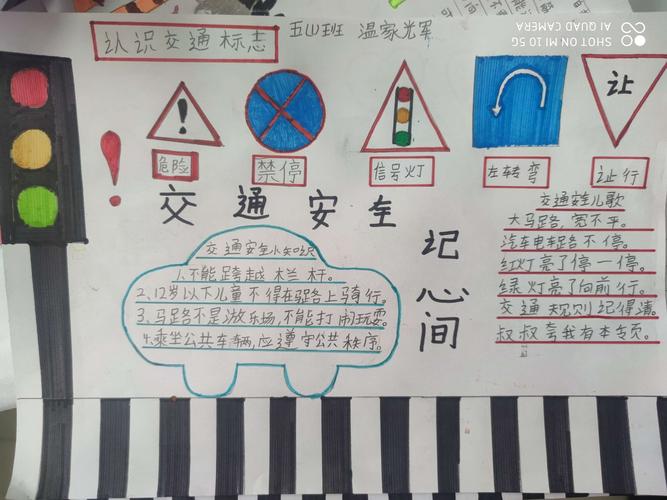 认识交通标志
五山班 温家光军
SHOT ON MI 10 5G
AI QUAD CAMERA
!
让
危险
禁停
信号灯
左转弯
让行
交通安全
记心间
交通安全小知识
1.不能跨越栏杆。
2、12岁以下儿童不得在路上骑行。
3、马路不是游乐场,不能打闹玩耍。
4.乘坐公共车辆,应遵守公共秩序。
交通安全儿歌
大马路,宽不平。
汽车电车路不停。
红灯亮了停一停。
绿灯亮了向前行。
交通规则记得清。
叔叔夸我有本领。